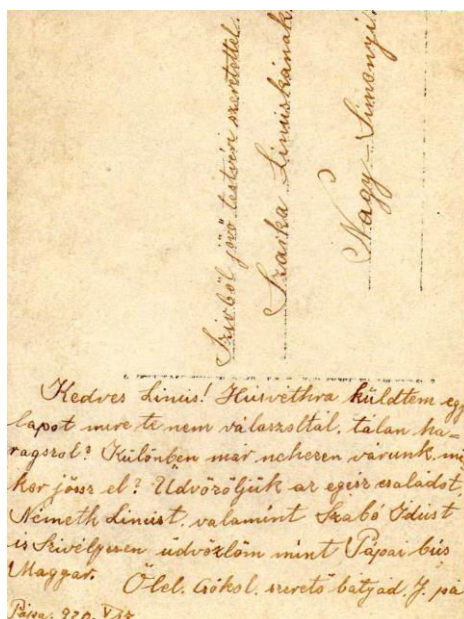 Szivből jövő testvéri szeretettel.
Szaika Linuskának
Nagy-Simonyi
Kedves Linus! Húsvéthra küldtem egy
lapot mire te nem válaszoltál. talan ha-
ragszol? Különben mar nehezen varunk mi
kor jössz el? Üdvözöljük az egisz családot,
Németh Linust, valamint Szabó Idust
is Szivélyesen üdvözlöm mint Pápai bús
Magyar. Ölel. csókol. szerető bátyad. J.
Pápa. 920.